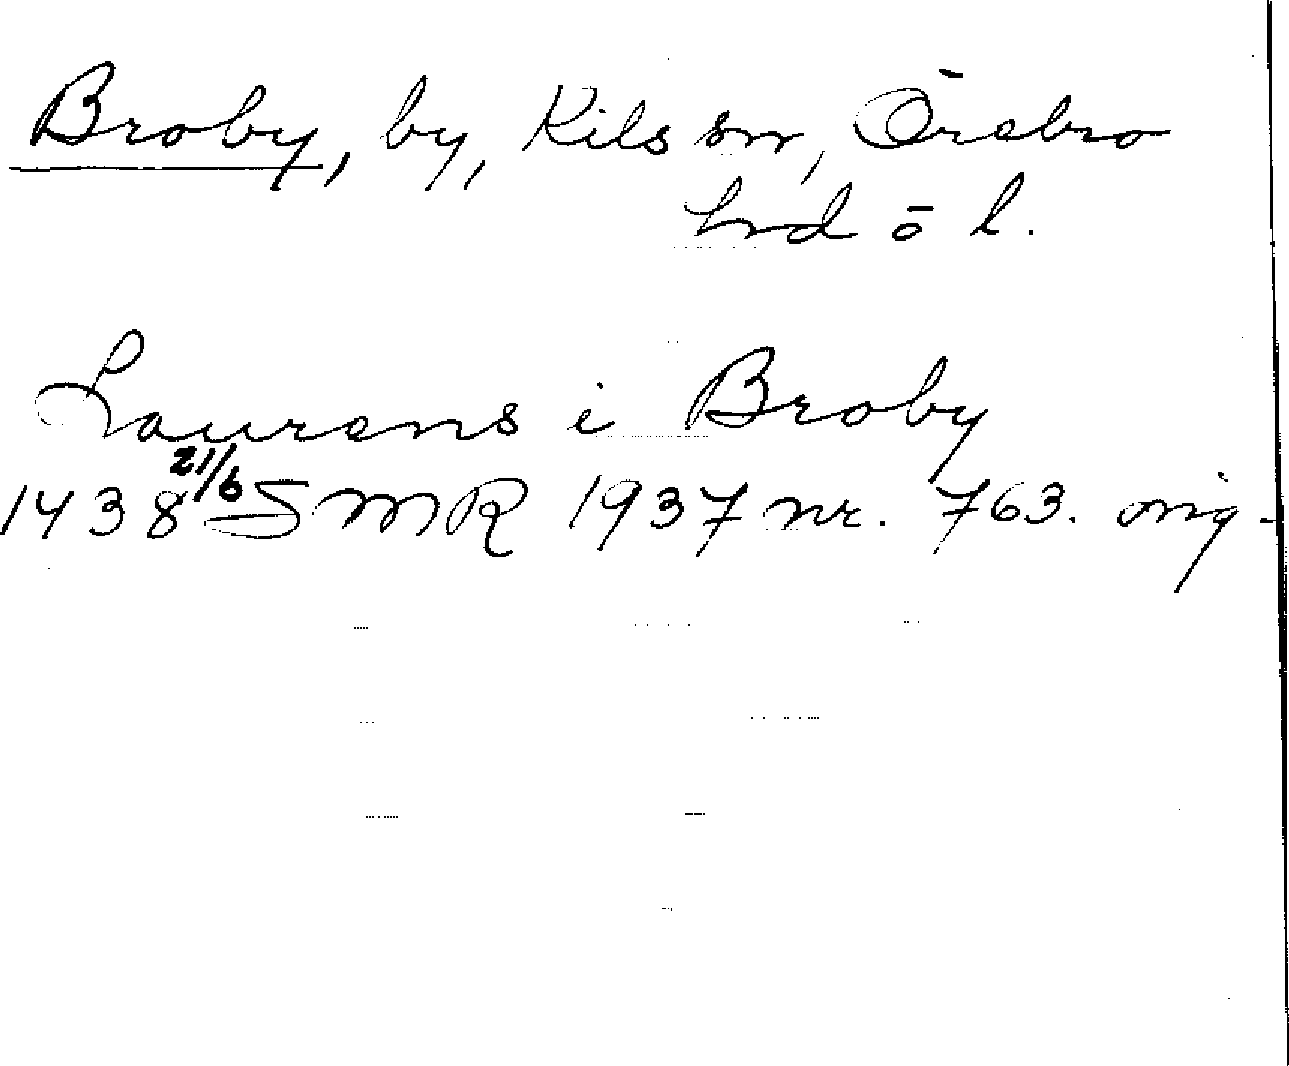 Broby, by, Kils sn, Örebro
hd ö l.
Laurens i Broby
1438 21/6 SMR 1937 nr. 763. orig.